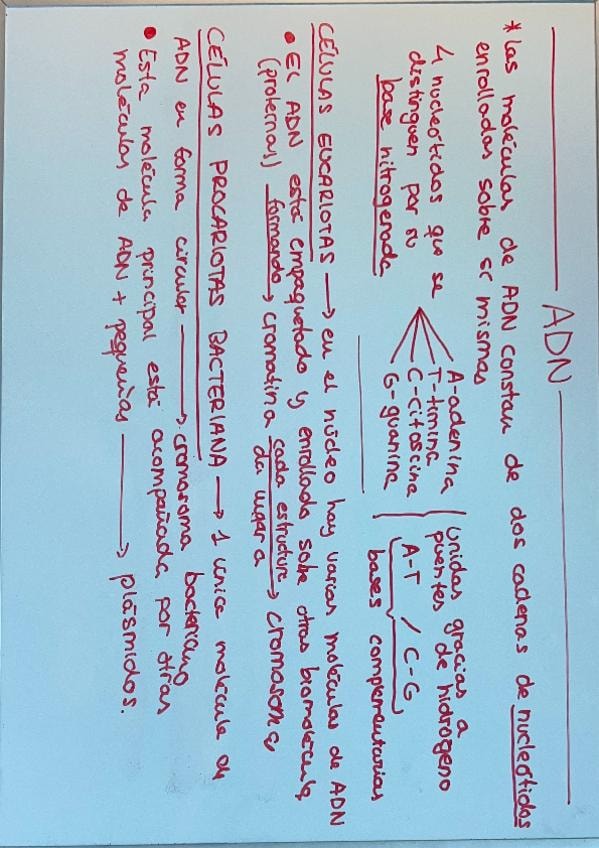 ADN
* Las moléculas de ADN constan de dos cadenas de nucleótidos
enrolladas sobre sí mismas
4 nucleótidos que se
distinguen por su
base nitrogenada
A-adenina
T-timina
C-citoscina
G-guanina
Unidas gracias a
puentes de hidrógeno
A-T / C-G
bases complementarias
CÉLULAS EUCARIOTAS → en el núcleo hay varias moléculas de ADN
• El ADN está empaquetado y enrollado sobre otras biomolécula
(proteínas) formando → cromatina cada estructura da lugar a → cromosoma
CÉLULAS PROCARIOTAS BACTERIANA → 1 única molécula de
ADN en forma circular → cromosoma bacteriano
• Esta molécula principal está acompañada por otras
moléculas de ADN + pequeñas → plásmidos.